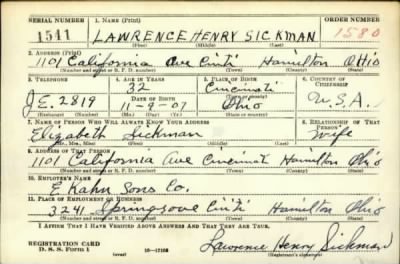 SERIAL NUMBER 1. NAME (Print) ORDER NUMBER
1541 LAWRENCE HENRY SICKMAN 1580
(First) (Middle) (Last)
2. ADDRESS (Print)
1101 California Ave Cin'ti Hamilton Ohio
(Number and street or R. F. D. number) (Town) (County) (State)
3. TELEPHONE 4. AGE IN YEARS 5. PLACE OF BIRTH 6. COUNTRY OF CITIZENSHIP
32 Cincinnati
JE. 2819 DATE OF BIRTH (Town or county) U.S.A.
11-9-07 Ohio
(Exchange) (Number) (Mo.) (Day) (Yr.) (State or country)
7. NAME OF PERSON WHO WILL ALWAYS KNOW YOUR ADDRESS 8. RELATIONSHIP OF THAT PERSON
Elizabeth Sickman Wife
(Mr., Mrs., Miss) (First) (Middle) (Last)
9. ADDRESS OF THAT PERSON
1101 California Ave Cincinnati Hamilton Ohio
(Number and street or R. F. D. number) (Town) (County) (State)
10. EMPLOYER'S NAME
E Kahn Sons Co.
11. PLACE OF EMPLOYMENT OR BUSINESS
3241 Cin'ti Hamilton Ohio
(Number and street or R. F. D. number) (Town) (County) (State)
I AFFIRM THAT I HAVE VERIFIED ABOVE ANSWERS AND THAT THEY ARE TRUE.
REGISTRATION CARD
D. S. S. Form 1 Lawrence Henry Sickman
(Registrant's signature)